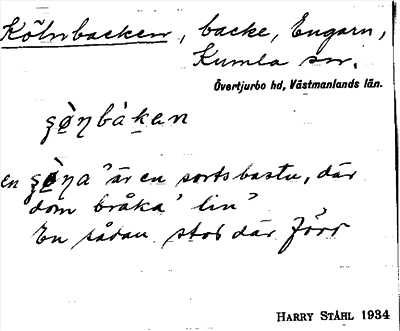 Kölnbacken, backe, Engarn,
Kumla sn.
Övertjurbo hd, Västmanlands län.
ʂø̀ηbàkan
en ʂø̀ηa "är en sorts bastu, där
dom bråka' lin"
En sådan stod där förr
HARRY STÅHL 1934